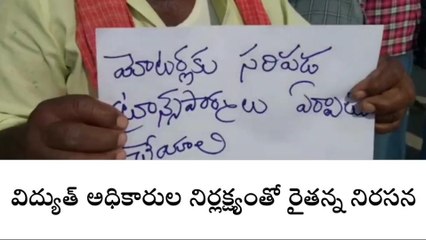 మోటర్లకు సరిపడ
ట్రాన్సఫార్మర్లు ఏర్పాటు
చేయాలి
విద్యుత్ అధికారుల నిర్లక్ష్యంతో రైతన్న నిరసన